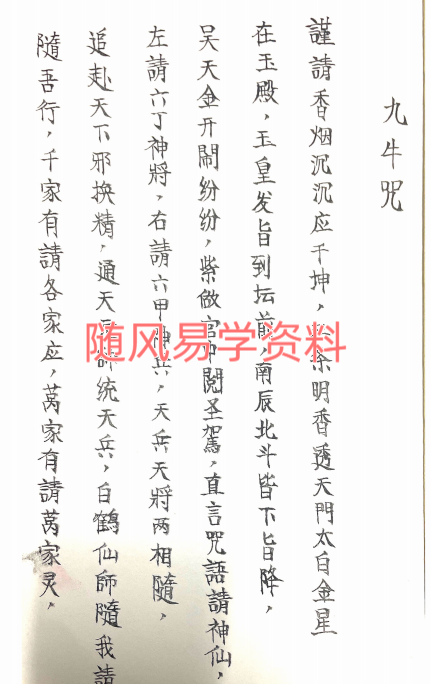 九牛咒
謹請香烟沉沉应干坤，余明香透天門太白金星
在玉殿，玉皇发旨到坛前，南辰北斗皆下旨降，
吴天金开鬧纷纷，紫做官中閱圣駕，直言咒語請神仙，
左請六丁神將，右請六甲神兵，天兵天將两相隨，
追赴天下邪换精，通天師统天兵，白鶴仙師隨我請
隨吾行，千家有請各家应，萬家有請萬家灵，
随风易学资料